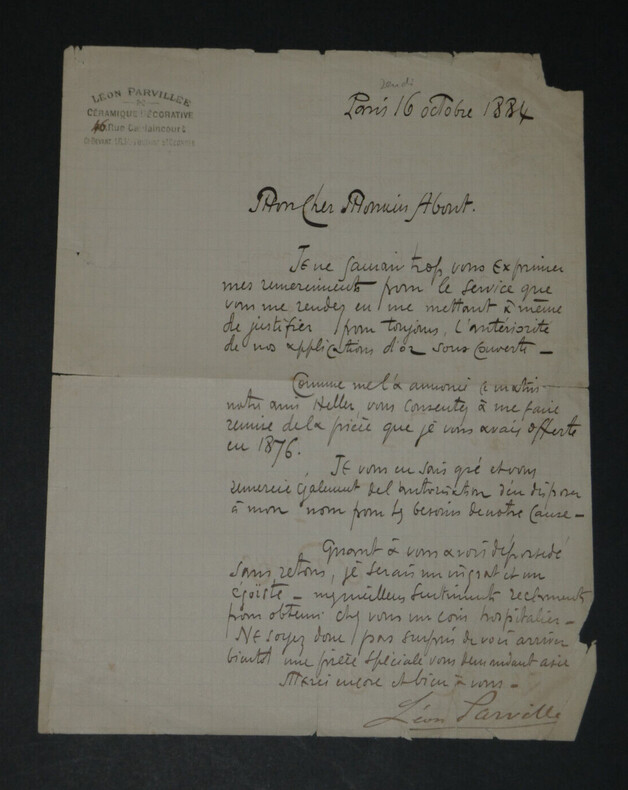 LÉON PARVILLÉE
CÉRAMIQUE DÉCORATIVE
46 Rue Caulaincourt
Jeudi
Paris 16 octobre 1884
Mon Cher Monsieur About.
Je ne saurais trop vous exprimer
mes remerciements pour le service que
vous me rendez en me mettant à même
de justifier pour toujours, l'antériorité
de nos applications d'or sous couverte —
Comme me l'a annoncé ce matin
notre ami Heller vous consentez à me faire
remise de la pièce que je vous avais offerte
en 1876.
Je vous en sais gré et vous
remercie également de l'autorisation d'en disposer
à mon nom pour les besoins de notre cause —
Quant à vous avoir dépossédé
sans retour, je serais un ingrat et un
égoïste — mes meilleurs sentiments réclament
pour obtenir chez vous un coin hospitalier —
Ne soyez donc pas surpris de voir arriver
bientôt une pièce spéciale vous demandant asile
Merci encore et bien à vous —
Léon Parvillée